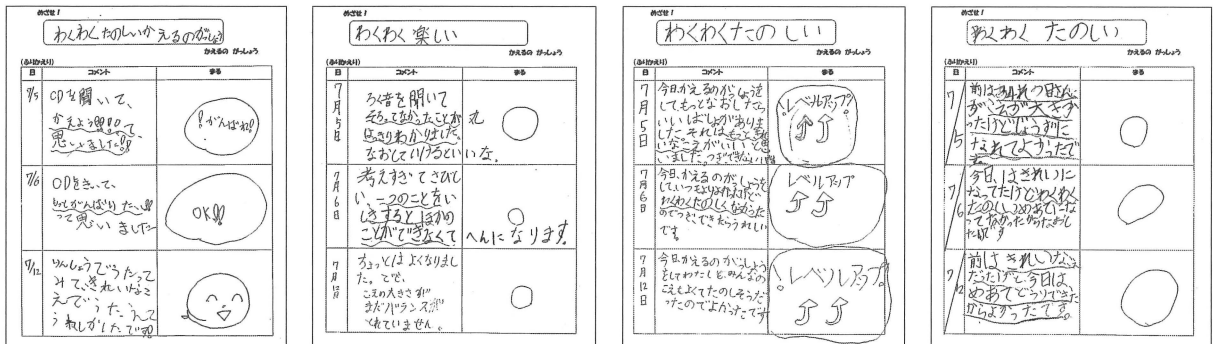 めざせ!
わくわくたのしいかえるのがっしょう
かえるの がっしょう
(ふりかえり)
日 コメント まる
7/5
CDを聞いて、
かえよう!!!!って、
思いました!!
がんばね!
7/6
CDをきいて、
もっとがんばりたい!!
って思い ました
OK!!
7/12
りんしょうでうたって
みて、きれいなこ
えでうたえて
うれしかたです!!
めざせ!
わくわく 楽しい
かえるの がっしょう
(ふりかえり)
日 コメント まる
7月5日
ろく音を聞いて
そろってなかったことが
はっきりわかりました。
なおしていけるといいな。
7月6日
考えすぎてさびし
い、一つのことをい
しきするとほかの
ことができなくて
へんになります。
7月12日
ちょっとはよくなりまし
た。でも、
こえの大きさが
まだバランスが
とれていません。
めざせ!
わくわくたのしい
かえるの がっしょう
(ふりかえり)
日 コメント まる
7月5日
今日、かえるのがっしょうを
してもっとなおしたら
いいばしょがありま
した それはもっときれ
いなこえがいいと思
いました。つぎできたらいい
レベルアップ!
7月6日
今日、かえるのがっしょうを
して、いつもよりよかったけど
わくわくたのしくなかった
のでつぎ、できたらうれしい
です。
レベルアップ
7月12日
今日、かえるのがっしょう
をしてわたしと、みんなの
こえもよくてたのしそうだ
ったのでよかったです
レベルアップ!
めざせ!
わくわく たのしい
かえるの がっしょう
(ふりかえり)
日 コメント まる
7/5
前は
がこえが大きか
ったけどじょうずに
なれてよかったで
す。
7/6
今日、はきれいに
なってたけどわくわく
たのしいのめあてにな
ってなかったからなおし
たいです
7/12
前はきれい
だったけど、今日は、
めあてどうりできた
からよかったです。